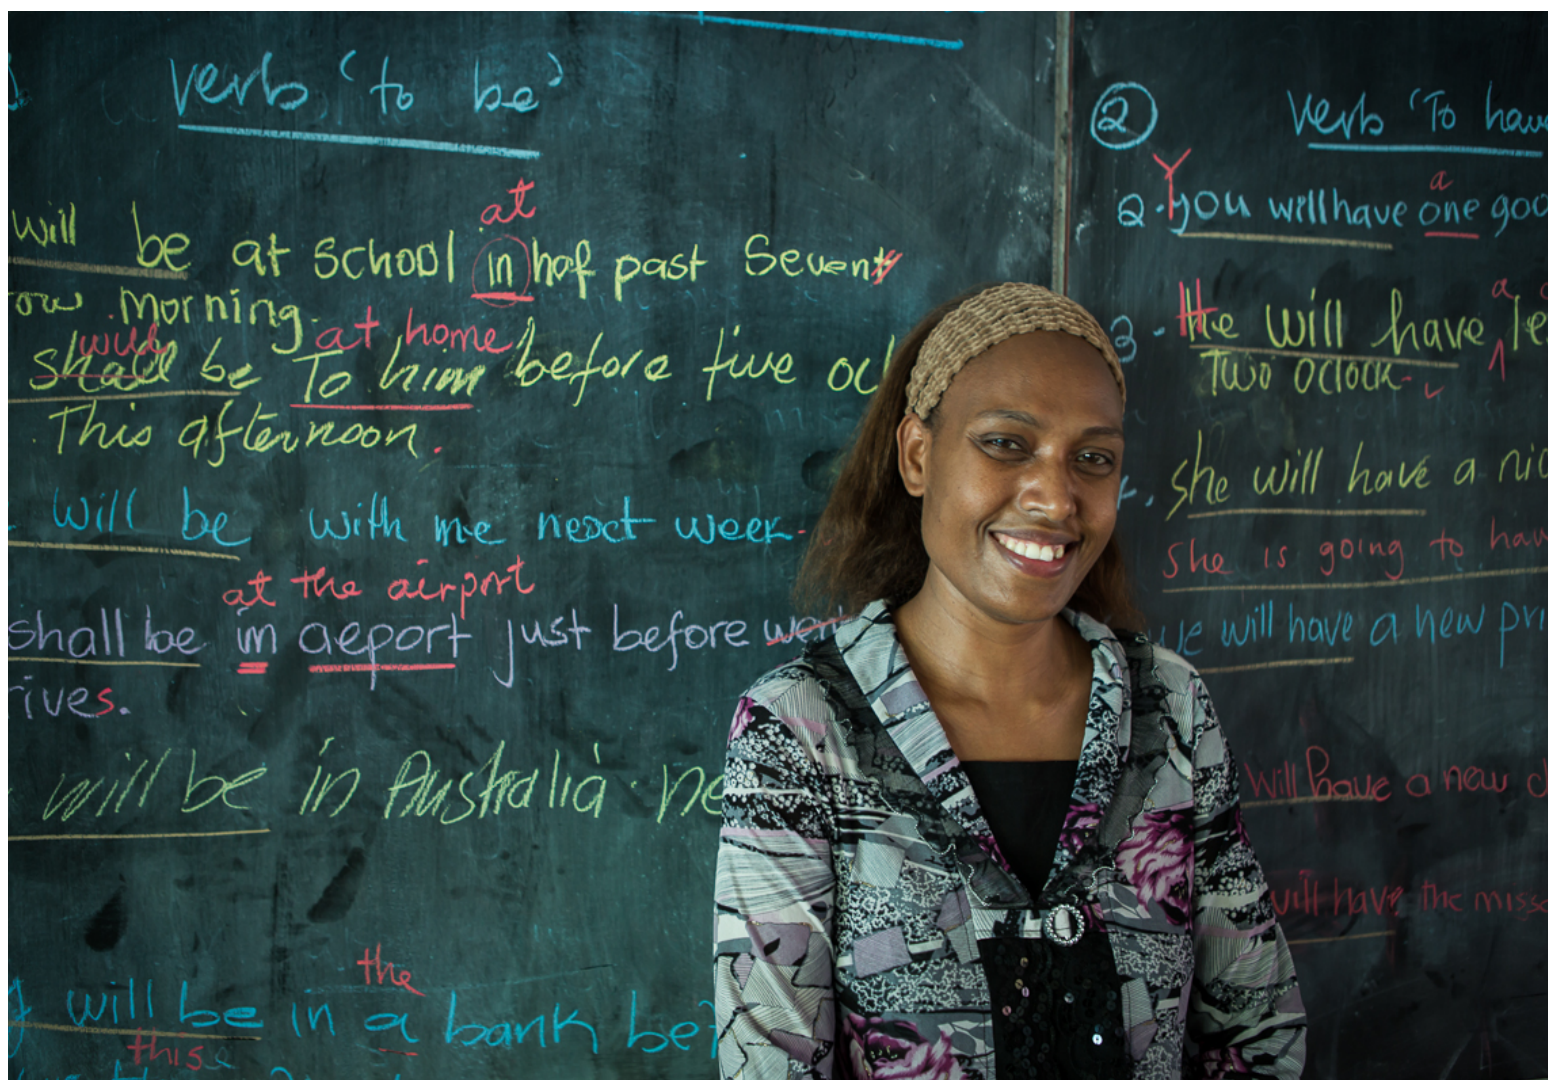 verb 'to be'
at
will be at school in haf past Seventy
ow morning.
will at home
shall be To him before five ocl
This afternoon.
will be with me next week.
at the airport
shall be in aeport just before went
rives.
will be in Australia ne
the
I will be in a bank be
this
② verb 'To hav
Y a
2. you will have one goo
a
3. He will have le
Two oclock.
she will have a nic
she is going to hav
we will have a new pri
will have a new
will have the miss